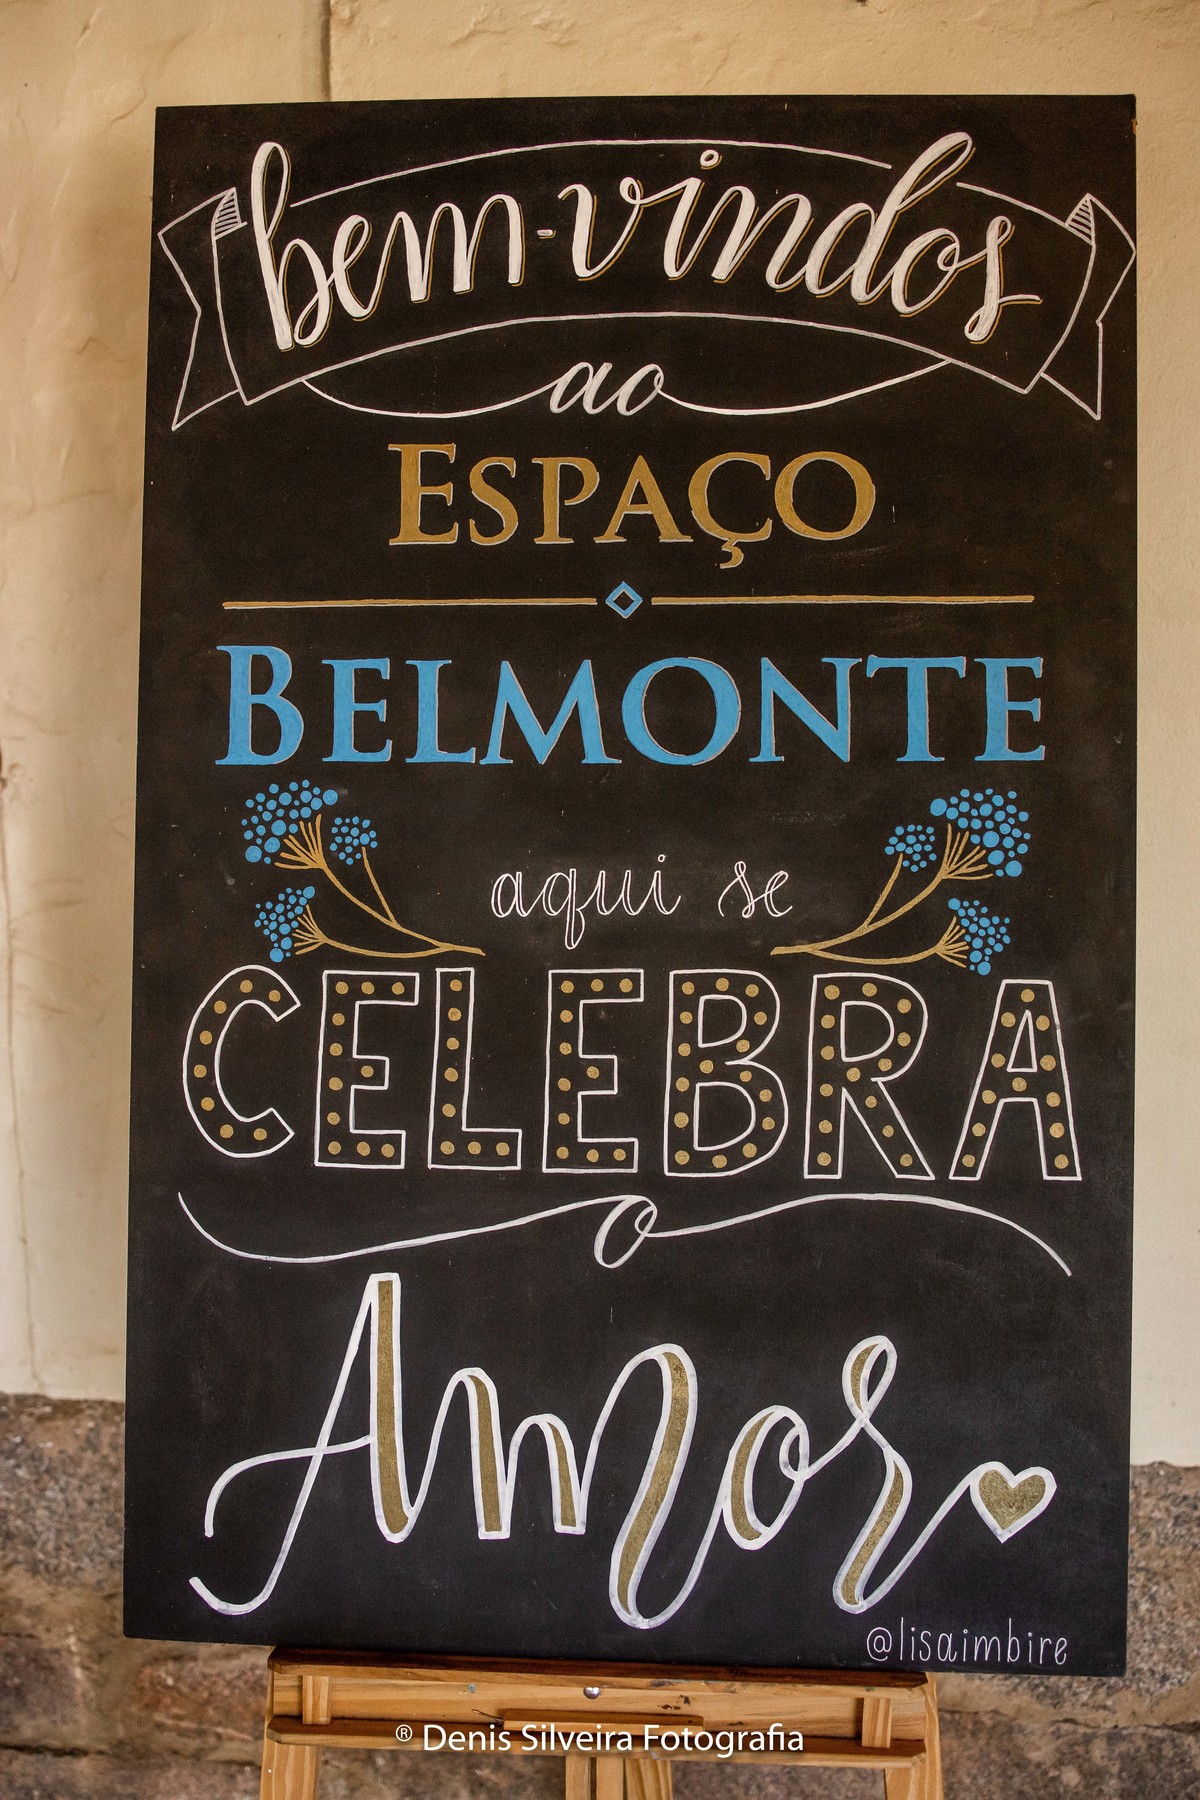 bem-vindos
ao
ESPAÇO
BELMONTE
aqui se
CELEBRA
o
Amor
@lisaimbire
® Denis Silveira Fotografia